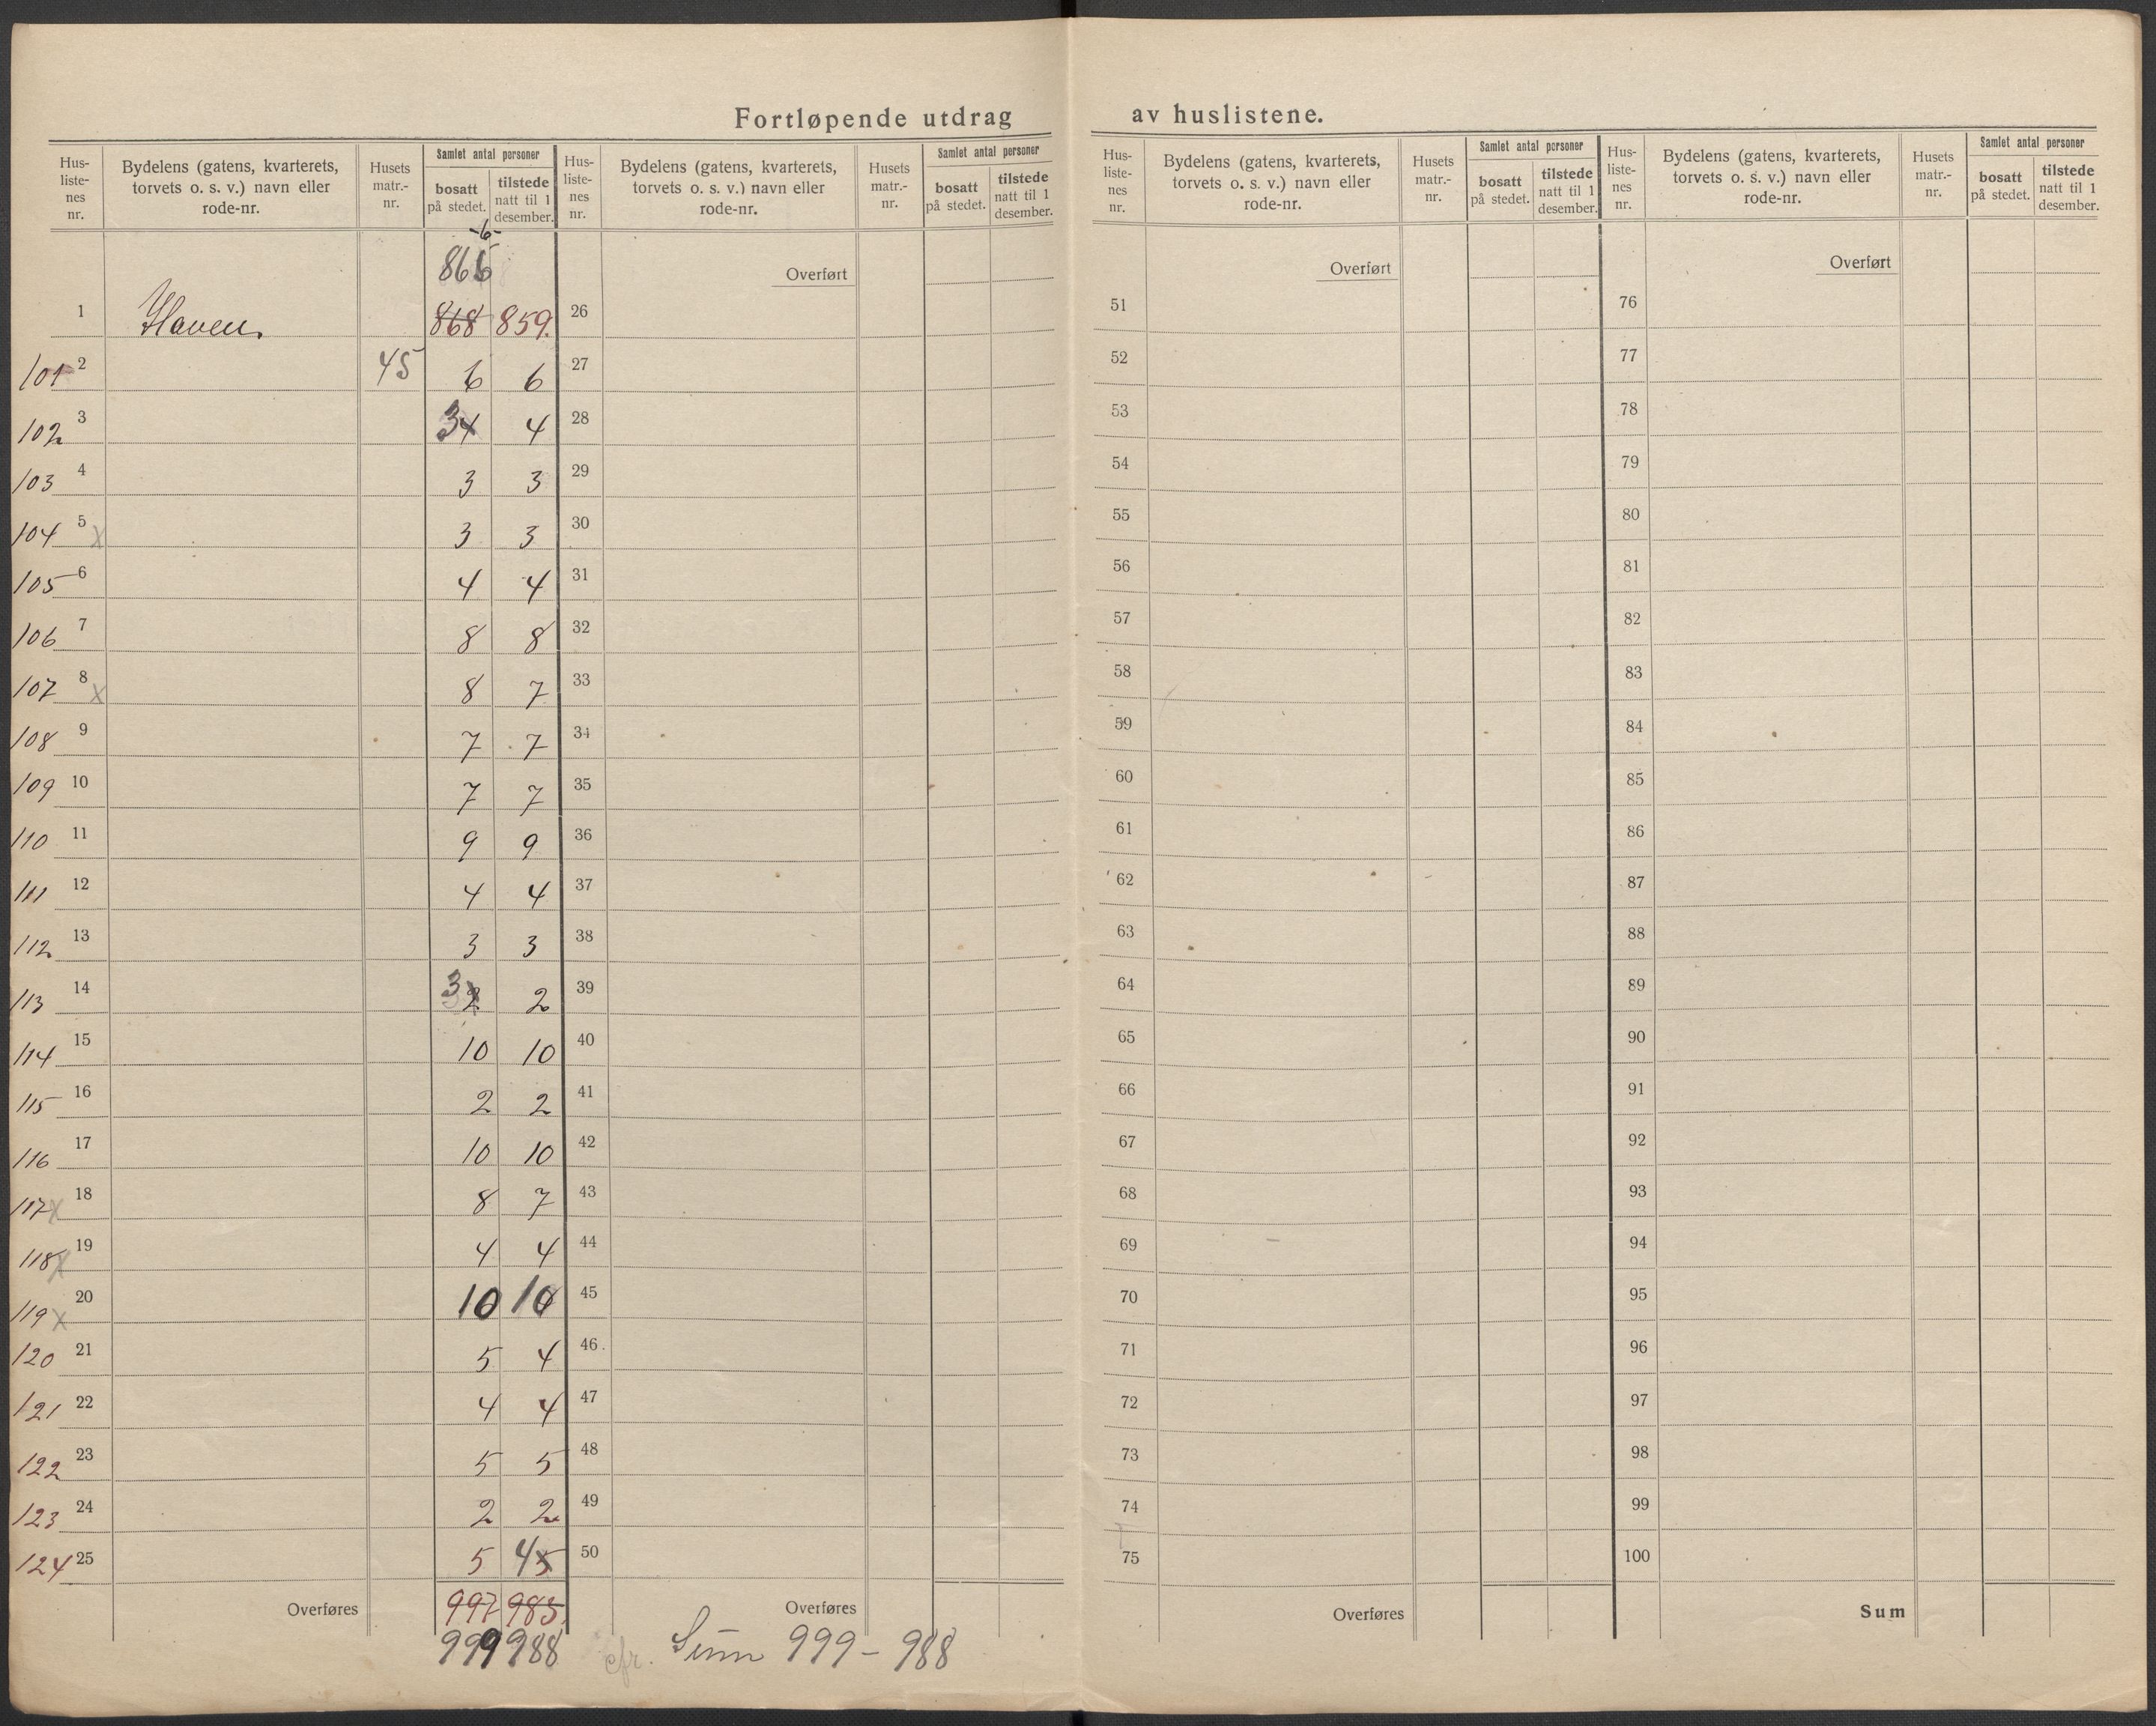 Fortløpende utdrag av huslistene.
Hus-listenes nr. | Bydelens (gatens, kvarterets, torvets o. s. v.) navn eller rode-nr. | Husets matr.-nr. | Samlet antal personer | bosatt på stedet. | tilstede natt til 1 desember.
Hus-listenes nr. | Bydelens (gatens, kvarterets, torvets o. s. v.) navn eller rode-nr. | Husets matr.-nr. | Samlet antal personer | bosatt på stedet. | tilstede natt til 1 desember.
Hus-listenes nr. | Bydelens (gatens, kvarterets, torvets o. s. v.) navn eller rode-nr. | Husets matr.-nr. | Samlet antal personer | bosatt på stedet. | tilstede natt til 1 desember.
Hus-listenes nr. | Bydelens (gatens, kvarterets, torvets o. s. v.) navn eller rode-nr. | Husets matr.-nr. | Samlet antal personer | bosatt på stedet. | tilstede natt til 1 desember.
-6-
866 Overført Overført Overført
1 Haven. 868 859. 26 51 76
101 2 45 6 6 27 52 77
102 3 3 4 4 28 53 78
103 4 3 3 29 54 79
104 5 x 3 3 30 55 80
105 6 4 4 31 56 81
106 7 8 8 32 57 82
107 8 x 8 7 33 58 83
108 9 7 7 34 59 84
109 10 7 7 35 60 85
110 11 9 9 36 61 86
111 12 4 4 37 62 87
112 13 3 3 38 63 88
113 14 3 2 2 39 64 89
114 15 10 10 40 65 90
115 16 2 2 41 66 91
116 17 10 10 42 67 92
117 x 18 8 7 43 68 93
118 x 19 4 4 44 69 94
119 x 20 10 10 45 70 95
120 21 5 4 46 71 96
121 22 4 4 47 72 97
122 23 5 5 48 73 98
123 24 2 2 49 74 99
124 25 5 4 5 50 75 100
Overføres 997 985. Overføres Overføres Sum
999 988 cfr. Sum 999 - 988